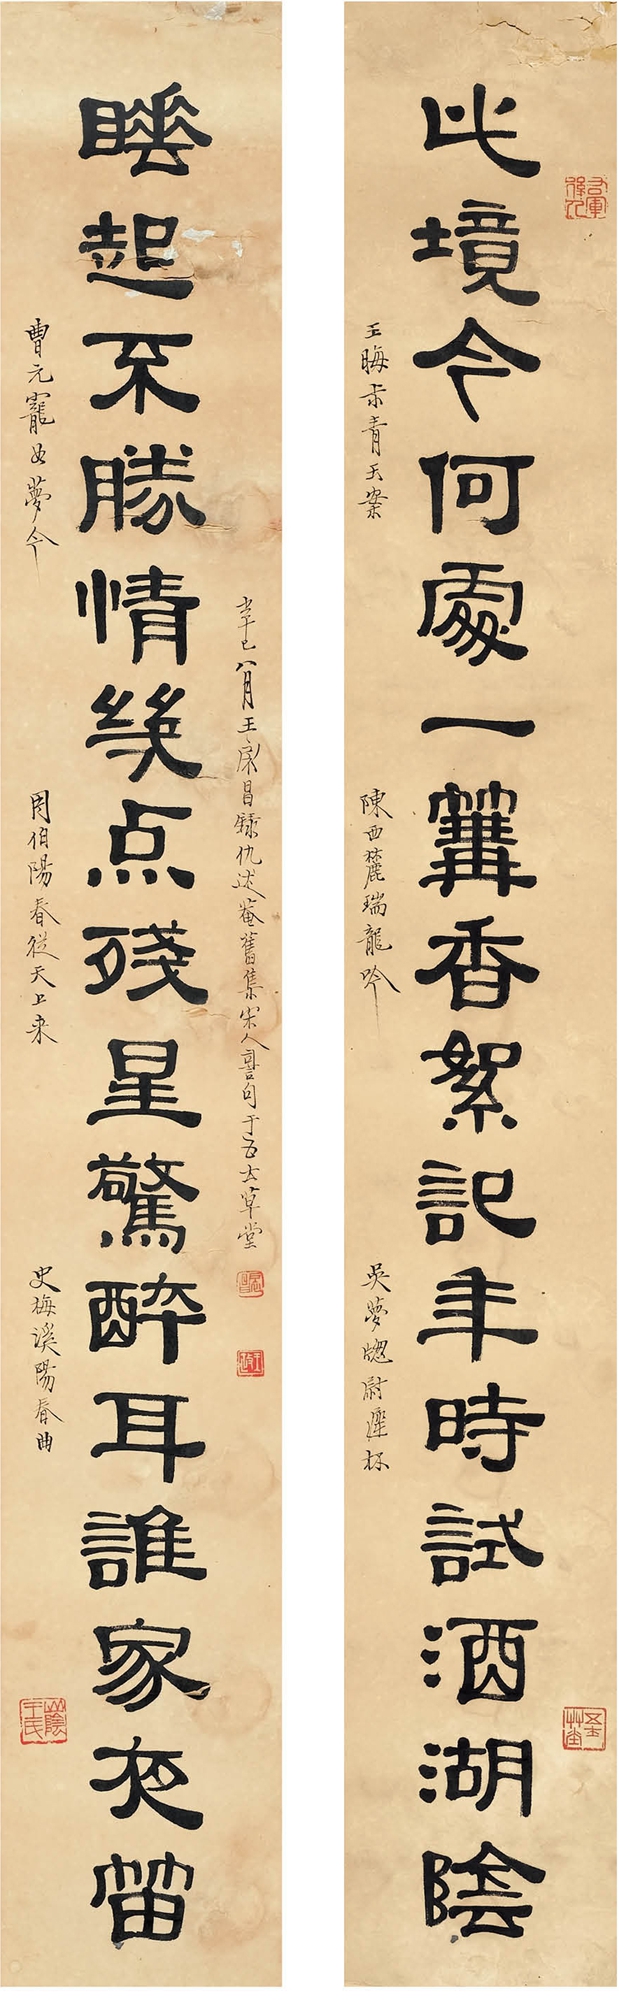 此境今何處一篝香絮記年時試酒湖陰
王晦尗青玉案
陳西麓瑞龍吟
吳夢窻尉遲杯
右軍後人
睡起不勝情幾点殘星驚醉耳誰家夜笛
辛巳八月王昌録仇述菴舊集宋人詞句于草堂
曹元寵如夢令
周伯陽春從天上来
史梅溪陽春曲
山陰王氏